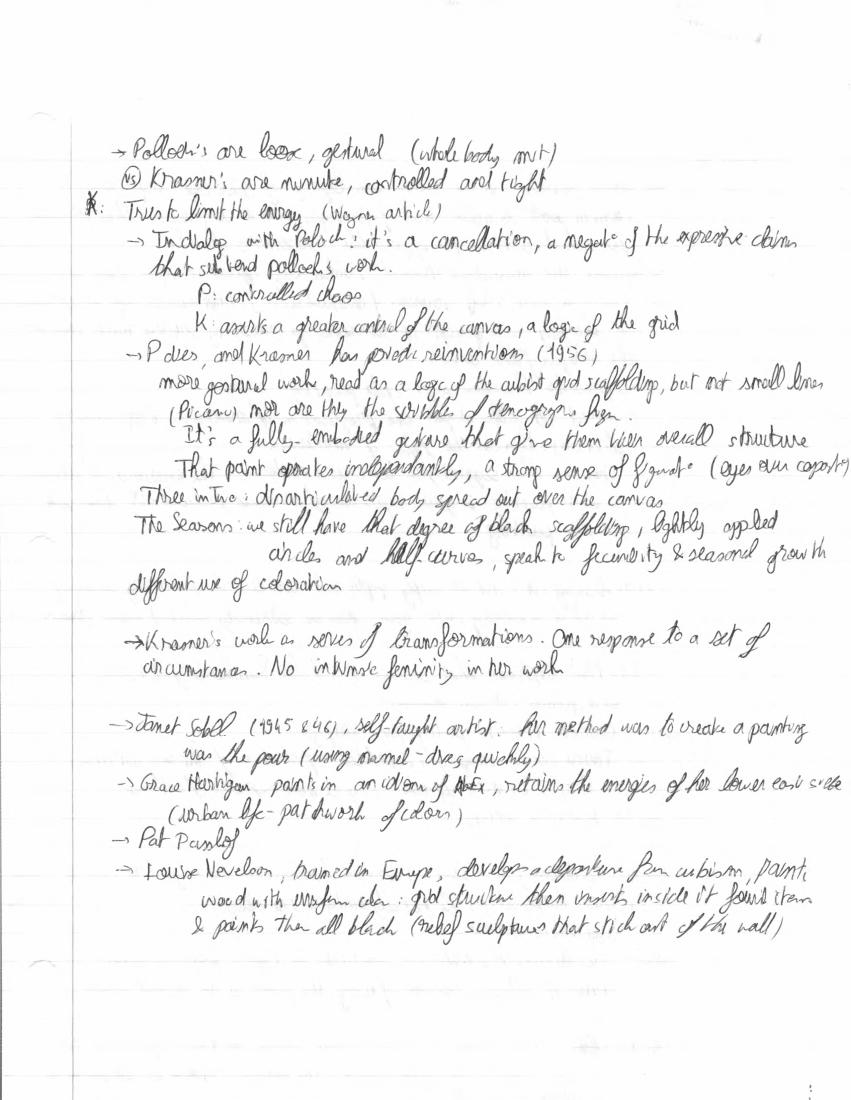 → Pollock's are loose, gestural (whole body mvt)
(vs) Krasner's are minute, controlled and tight
K: Tries to limit the energy (Wagner article)
→ In dialog with Poloch: it's a cancellation, a negat° of the expressive claims
that subtend pollock's work.
P: controlled chaos
K: asserts a greater control of the canvas, a logic of the grid
→ P dies, and Krasner has reinventions (1956)
more gestural work, read as a logic of the cubist grid scaffolding, but not small lines
(Picasso) nor are they the scribbles of
It's a fully-embodied gesture that give them their overall structure
That paint operates independantly, a strong sense of figurat° (eyes over
Three in Two: disarticulated body spread out over the canvas
The Seasons: we still have that degree of black scaffolding, lightly applied
circles and half-curves, speak to fecundity & seasonal growth
different use of coloration
→ Krasner's work as series of transformations. One response to a set of
circumstances. No intrinsic feminity in her work
→ Janet Sobel (1945 & 46), self-taught artist. her method was to create a painting
was the pour (using enamel - dries quickly)
→ Grace Hartigan paints in an idiom of AbEx, retains the energies of her lower east side
(urban life - patchwork of colors)
→ Pat Passlof
→ Louise Nevelson, trained in Europe, develops a departure from cubism, paints
wood with uniform color: grid structure then inserts inside it found item
& paints them all black (relief sculptures that stick out of the wall)